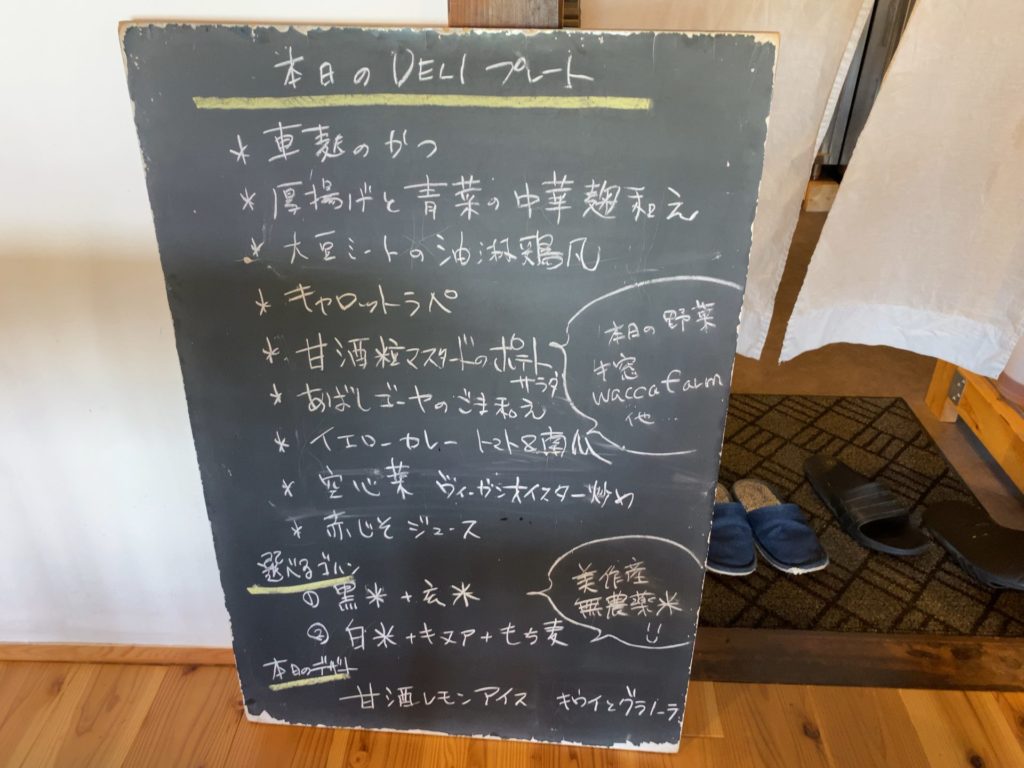 本日のDELIプレート
* 車麩のかつ
* 厚揚げと青菜の中華麹和え
* 大豆ミートの油淋鶏風
* キャロットラペ
* 甘酒粒マスタードのポテト
サラダ
* あばしゴーヤのごま和え
* イエローカレー トマト&南瓜
* 空心菜 ヴィーガンオイスター炒め
* 赤じそジュース
本日の野菜
wacca farm
他…
選べるゴハン
① 黒米+玄米
② 白米+キヌア+もち麦
美作産
無農薬米
本日のデザート
甘酒レモンアイス キウイとグラノーラ